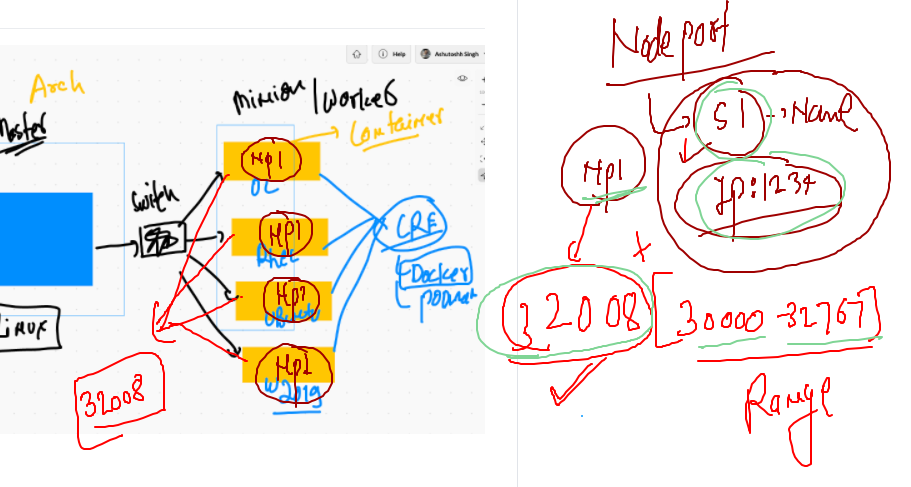 Help
Ashutoshh Singh
Arch
Master
Minion / Worker
Container
Switch
Np1
OL
Np1
Rhel
Np1
Ubuntu
Np1
W2019
CRE
Docker
podman
Linux
32008
Nodeport
S1 → Name
Ip:1234
Np1
32008
[30000-32767]
Range